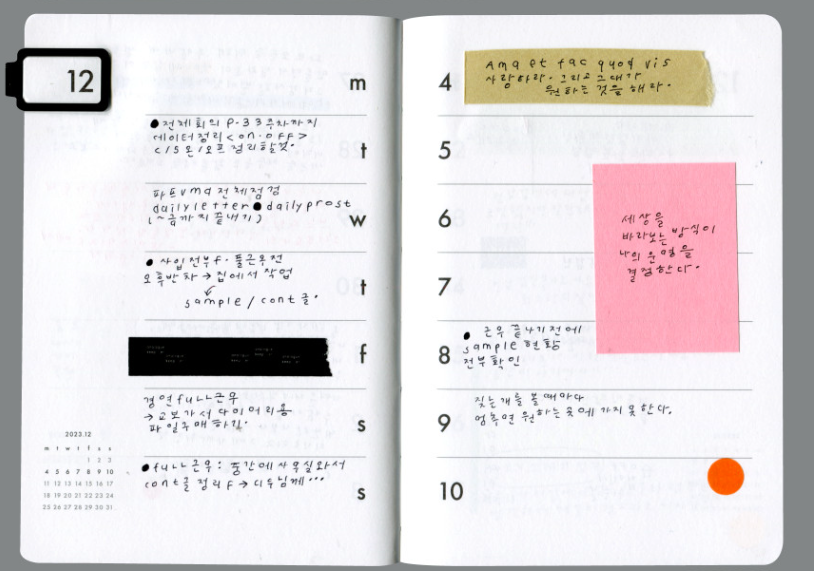 12
m
● 전체회의 P.33주차까지
데이터정리 <on.off>
<15온/오프정리할것.
t
파트vmd 전체점검
dailyletter ● dailyprost
(~금까지끝내기)
w
● 사입전부f. 풀근무전
오후반차 → 집에서 작업
sample / cont 글.
t
f
경연full근무
→ 교보가서다이어리용
파일구매하기.
s
● full근무: 중간에사무실와서
cont글 정리f → 디두님께...
s
2023.12
m t w t f s s
1 2 3
4 5 6 7 8 9 10
11 12 13 14 15 16 17
18 19 20 21 22 23 24
25 26 27 28 29 30 31
4
ama et fac quod vis
사랑하라. 그리고그대가
원하는 것을 해라.
5
세상을
바라보는 방식이
나의 운명을
결정한다.
6
7
● 근무 끝나기전에
sample 현황
전부확인
8
짖는개를 볼때마다
멈추면 원하는 곳에 가지 못한다.
9
10